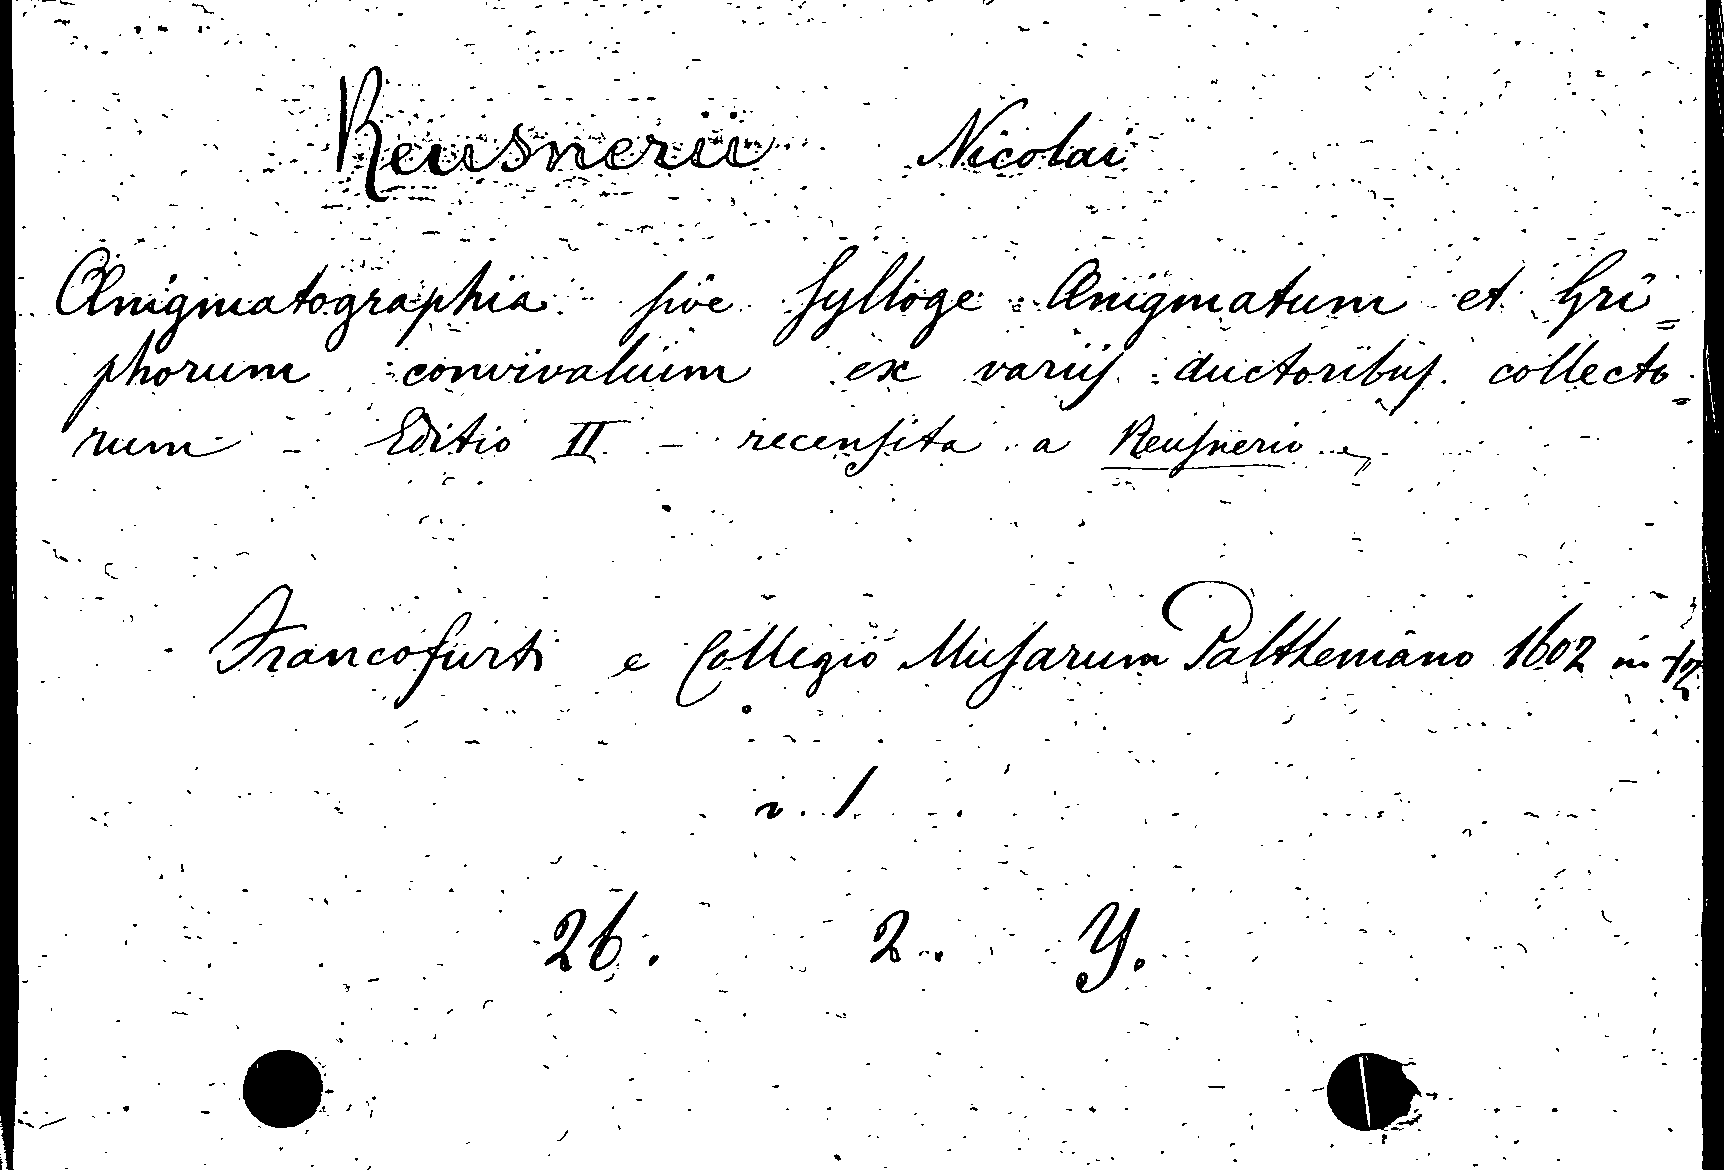 Reusnerii Nicolai
Ænigmatographia sive Sylloge Ænigmatum et Gri=
phorum convivalium ex variis auctoribus collecto=
rum - Editio II - recensita a Reusnerio
Francofurti e Collegio Musarum Paltheniano 1602 in 12
v. 1.
26. 2. Y.